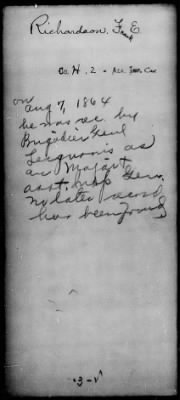 Richardson, F. E.
Co. H, 2 -
on
Aug 7, 1864
he was rec. by
Brigadier Genl
as
an Major &
asst. Genl.
No later record
has been found